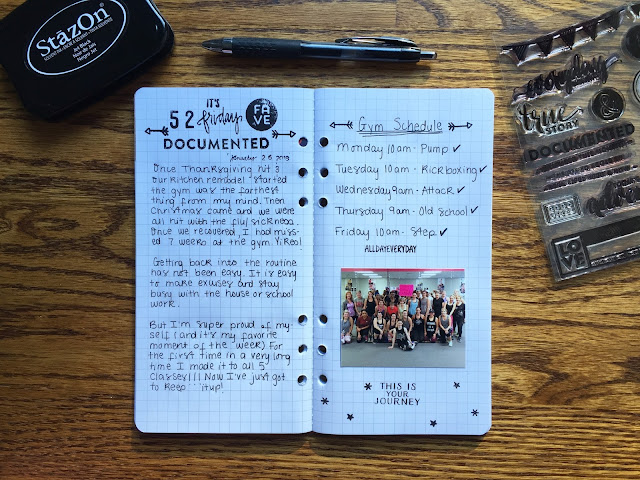 StāzOn
Jet Black
Noir de jais
Negro Jet
IT'S
52 friday FAVE
DOCUMENTED
January 26 2018
Once Thanksgiving hit &
our kitchen remodel started
the gym was the farthest
thing from my mind. Then
Christmas came and we were
all hit with the flu/sickness.
Once we recovered, I had miss-
ed 7 weeks at the gym. Yikes!
Getting back into the routine
has not been easy. It is easy
to make exuses and stay
busy with the house or school
work.
But I'm super proud of my-
self (and it's my favorite
moment of the week) For
the first time in a very long
time I made it to all 5
classes!!!! Now I've just got
to keep it up!
Gym Schedule
Monday 10am - Pump ✓
Tuesday 10am - Kickboxing ✓
Wednesday 9am - Attack ✓
Thursday 9am - Old School ✓
Friday 10am - Step ✓
ALLDAYEVERYDAY
THIS IS
YOUR
JOURNEY
everyday
true
STORY
DOCUMENTED
LOVE